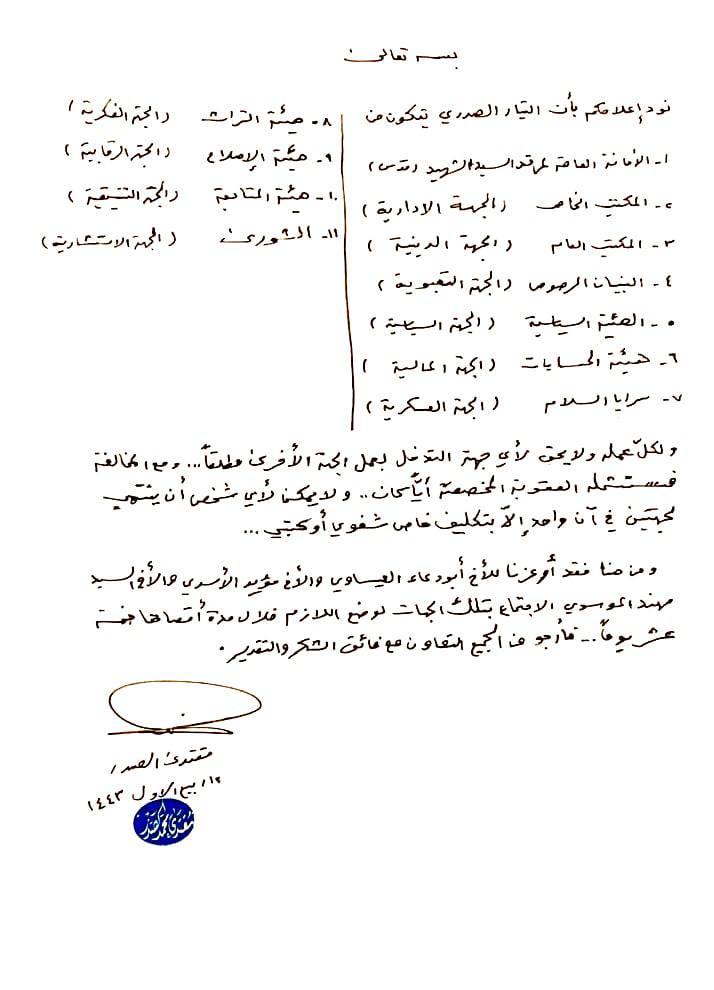 بسمه تعالى
نود إعلامكم بأن التيار الصدري يتكون من
١- الأمانة العامة لمرقد السيد الشهيد (قدس)
٢- المكتب الخاص (الجهة الادارية)
٣- المكتب العام (الجهة الدينية)
٤- البنيان المرصوص (الجهة التعبوية)
٥- الهيئة السياسية (الجهة السياسية)
٦- هيئة الحسابات (الجهة المالية)
٧- سرايا السلام (الجهة العسكرية)
٨- هيئة التراث (الجهة الفكرية)
٩- هيئة الإصلاح (الجهة الرقابية)
١٠- هيئة المتابعة (الجهة التنسيقية)
١١- الشورى (الجهة الاستشارية)
ولكلٍّ عمله ولا يحق لأي جهة التدخل بعمل الجهة الأخرى مطلقاً... ومع المخالفة
فستشمله العقوبة المخصصة أيّاً كان.. ولا يمكن لأي شخص أن ينتمي
لجهتين في آن واحد إلاّ بتكليف خاص شفوي أو كتبي...
ومن هنا فقد أوعزنا للأخ أبو دعاء العيساوي والأخ مؤيد الأسدي والأخ السيد
مهند الموسوي الاجتماع بتلك الجهات لوضع اللازم خلال مدة أقصاها خمسة
عشر يوماً... فأرجو من الجميع التعاون مع فائق الشكر والتقدير.
مقتدى الصدر
١٢/ربيع الاول ١٤٤٣